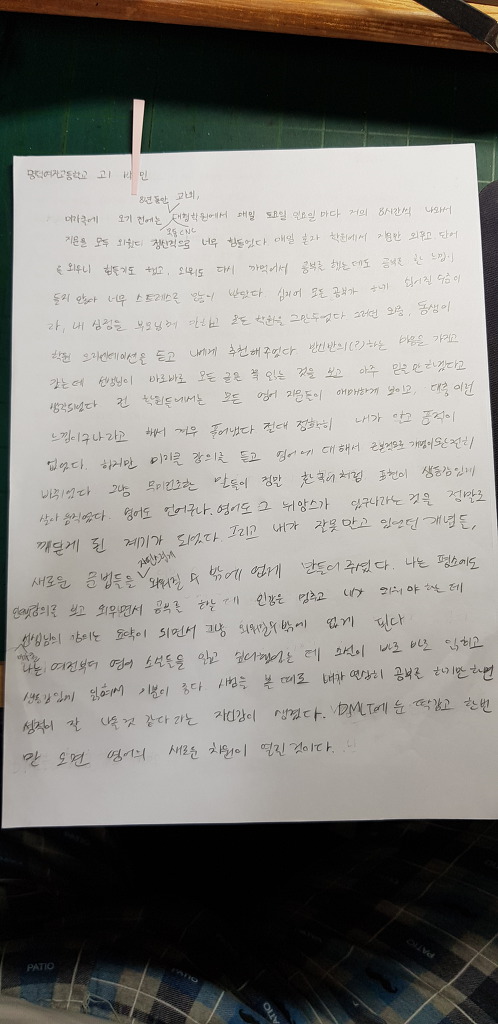 명덕여자고등학교 고1 박 민
8년동안 교회,
오기 전에는 대형학원에서 매일 토요일 일요일 마다 거의 8시간씩 나와서
지문을 모두 외웠다 정신적으로 너무 힘들었다 매일 혼자 학원에서 지문만 외우고, 단어
를 외우니 힘들기도 했고, 외워도 다시 까먹어서 공부를 했는데도 공부를 한 느낌이
들지 않아 너무 스트레스를 많이 받았다 심지어 모든 공부가 하기 싫어질 정도이
라, 내 심정을 부모님께 말하고 모든 학원을 그만두었다 그러던 와중, 동생이
학원 오리엔테이션을 듣고 나에게 추천해주었다 반신반의(?)하는 마음을 가지고
갔는데 선생님이 바로바로 모든 글을 쭉 읽는 것을 보고 아주
생각되었다 전 학원들에서는 모든 영어 지문들이 애매하게 보이고, 대충 이런
느낌이구나 라고 해서 겨우 풀어냈다 절대 정확히 내가 알고 푼적이
없었다. 하지만 강의를 듣고 영어에 대해서 근본적으로 개념이 완전히
바뀌었다 그냥 무미건조한 말들이 정말 한국어처럼 표현이 생동감있게
살아 움직였다 영어도 언어구나. 영어도 그 뉘앙스가 있구나라는 것을 정말로
깨닫게 된 계기가 되었다 그리고 내가 잘못알고 있었던 개념들,
새로운 문법들을 외워질 수 밖에 없게 만들어 주셨다. 나는 평소에도
강의를 보고 외우면서 공부를 하는데 인강은 멈추고 내가 외워야 하는데
선생님의 강의는 요약이 되면서 그냥 외워질수밖에 없게 된다
나는 예전부터 영어 소설들을 읽고 싶어했었는데 소설이 바로 바로 읽히고
생동감있게 읽혀서 기분이 좋다 시험을 볼 때도 내가 열심히 공부를 하기만 하면
성적이 잘 나올것 같다 라는 자신감이 생겼다. DMLT에 눈 딱감고 한번
만 오면 영어의 새로운 차원이 열린 것이다.
PATIO
PATIO
PATIO